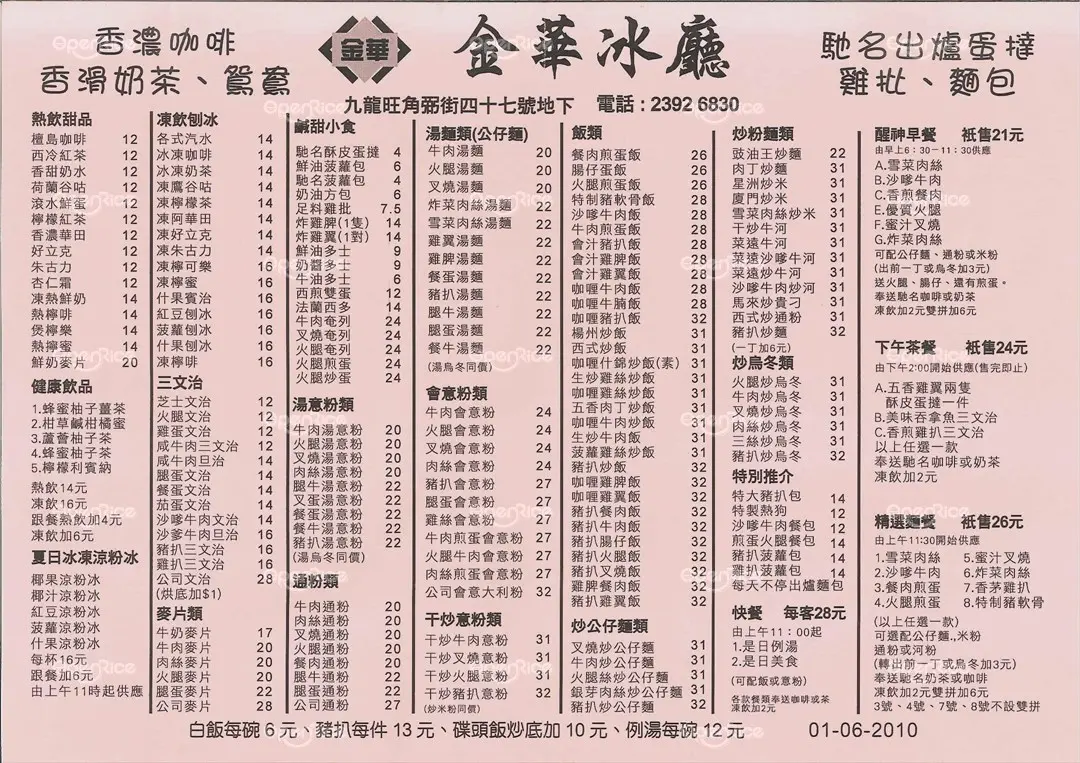 香濃咖啡
香滑奶茶、鴛鴦
金華
金華冰廳
九龍旺角弼街四十七號地下 電話：2392 6830
馳名出爐蛋撻
雞批、麵包
熱飲甜品
檀島咖啡 12
西冷紅茶 12
香甜奶水 12
荷蘭谷咕 12
滾水鮮蛋 12
檸檬紅茶 12
香濃華田 12
好立克 12
朱古力 12
杏仁霜 12
凍熱鮮奶 14
熱檸啡 14
煲檸樂 14
熱檸蜜 14
鮮奶麥片 20
健康飲品
1.蜂蜜柚子薑茶
2.柑草鹹柑橘蜜
3.蘆薈柚子茶
4.蜂蜜柚子茶
5.檸檬利賓納
熱飲14元
凍飲16元
跟餐熱飲加4元
凍飲加6元
夏日冰凍涼粉冰
椰果涼粉冰
椰汁涼粉冰
紅豆涼粉冰
菠蘿涼粉冰
什果涼粉冰
每杯16元
跟餐加6元
由上午11時起供應
凍飲刨冰
各式汽水 14
冰凍咖啡 14
冰凍奶茶 14
凍鷹谷咕 14
凍檸檬茶 14
凍阿華田 14
凍好立克 14
凍朱古力 14
凍檸可樂 16
凍檸蜜 16
什果賓治 16
紅豆刨冰 16
菠蘿刨冰 16
什果刨冰 16
凍檸啡 16
三文治
芝士文治 12
火腿文治 12
雞蛋文治 12
咸牛肉三文治 12
咸牛肉旦治 14
腿蛋文治 14
餐蛋文治 14
茄蛋文治 14
沙嗲牛肉文治 14
沙爹牛肉旦治 16
豬扒三文治 16
雞扒三文治 16
公司文治 28
(烘底加$1)
麥片類
牛奶麥片 17
牛肉麥片 20
肉絲麥片 20
火腿麥片 20
腿蛋麥片 22
公司麥片 28
鹹甜小食
馳名酥皮蛋撻 4
鮮油菠蘿包 6
馳名菠蘿包 4
奶油方包 6
足料雞批 7.5
炸雞脾(1隻) 14
炸雞翼(1對) 14
鮮油多士 9
奶醬多士 9
牛油多士 6
西煎雙蛋 12
法蘭西多 14
牛肉奄列 24
叉燒奄列 24
火腿奄列 24
火腿煎蛋 24
火腿炒蛋 24
湯意粉類
牛肉湯意粉 20
火腿湯意粉 20
叉燒湯意粉 20
肉絲湯意粉 20
腿牛湯意粉 22
叉蛋湯意粉 22
餐蛋湯意粉 22
餐牛湯意粉 22
豬扒湯意粉 22
(湯烏冬同價)
通粉類
牛肉通粉 20
肉絲通粉 20
叉燒通粉 20
火腿通粉 20
餐肉通粉 20
腿牛通粉 22
腿蛋通粉 22
公司通粉 27
湯麵類(公仔麵)
牛肉湯麵 20
火腿湯麵 20
叉燒湯麵 20
炸菜肉絲湯麵 22
雪菜肉絲湯麵 22
雞翼湯麵 22
雞脾湯麵 22
餐蛋湯麵 22
豬扒湯麵 22
腿牛湯麵 22
腿蛋湯麵 22
餐牛湯麵 22
(湯烏冬同價)
會意粉類
牛肉會意粉 24
火腿會意粉 24
叉燒會意粉 24
肉絲會意粉 24
豬扒會意粉 27
腿蛋會意粉 27
雞絲會意粉 27
牛肉煎蛋會意粉 27
火腿牛肉會意粉 27
肉絲煎蛋會意粉 27
公司會意大利粉 32
干炒意粉類
干炒牛肉意粉 31
干炒叉燒意粉 31
干炒火腿意粉 31
干炒豬扒意粉 32
(炒米粉同價)
飯類
餐肉煎蛋飯 26
腸仔蛋飯 26
火腿煎蛋飯 26
特制豬軟骨飯 28
沙嗲牛肉飯 28
牛肉煎蛋飯 28
會汁豬扒飯 28
會汁雞脾飯 28
會汁雞翼飯 28
咖喱牛肉飯 28
咖喱牛腩飯 28
咖喱豬扒飯 31
楊州炒飯 31
西式炒飯 31
咖喱什錦炒飯(素) 31
生炒雞絲炒飯 31
咖喱雞絲炒飯 31
五香肉丁炒飯 31
咖喱牛肉炒飯 31
生炒牛肉飯 31
菠蘿雞絲炒飯 31
豬扒炒飯 32
咖喱雞脾飯 32
咖喱雞翼飯 32
豬扒餐肉飯 32
豬扒牛肉飯 32
豬扒腸仔飯 32
豬扒火腿飯 32
豬扒叉燒飯 32
雞脾餐肉飯 32
豬扒雞翼飯 32
炒公仔麵類
叉燒炒公仔麵 31
牛肉炒公仔麵 31
火腿絲炒公仔麵 31
銀芽肉絲炒公仔麵 31
豬扒炒公仔麵 32
炒粉麵類
豉油王炒麵 22
肉丁炒麵 31
星洲炒米 31
廈門炒米 31
雪菜肉絲炒米 31
干炒牛河 31
菜遠牛河 31
菜遠沙嗲牛河 31
菜遠炒牛河 31
沙嗲牛肉炒河 31
馬來炒貴刁 31
西式炒通粉 31
豬扒炒麵 32
(一丁加6元)
炒烏冬類
火腿炒烏冬 31
牛肉炒烏冬 31
叉燒炒烏冬 31
肉絲炒烏冬 31
三絲炒烏冬 31
豬扒炒烏冬 32
特別推介
特大豬扒包 14
特製熱狗 12
沙嗲牛肉餐包 12
煎蛋火腿餐包 12
豬扒菠蘿包 14
雞扒菠蘿包 14
每天不停出爐麵包
快餐 每客28元
由上午11：00起
1.是日例湯
2.是日美食
(可配飯或意粉)
各款餐類奉送咖啡或茶
凍飲加2元
醒神早餐 祇售21元
由早上6：30－11：30供應
A.雪菜肉絲
B.沙嗲牛肉
C.香煎餐肉
E.優質火腿
F.蜜汁叉燒
G.炸菜肉絲
可配公仔麵、通粉或米粉
(出前一丁或烏冬加3元)
送火腿、腸仔、還有煎蛋。
奉送馳名咖啡或奶茶
凍飲加2元雙拼加6元
下午茶餐 祇售24元
由下午2:00開始供應(售完即止)
A.五香雞翼兩隻
酥皮蛋撻一件
B.美味吞拿魚三文治
C.香煎雞扒三文治
以上任選一款
奉送馳名咖啡或奶茶
凍飲加2元
精選麵餐 祇售26元
由上午11:30開始供應
1.雪菜肉絲 5.蜜汁叉燒
2.沙嗲牛肉 6.炸菜肉絲
3.餐肉煎蛋 7.香茅雞扒
4.火腿煎蛋 8.特制豬軟骨
(以上任選一款)
可選配公仔麵.,米粉
通粉或河粉
(轉出前一丁或烏冬加3元)
奉送馳名奶茶或咖啡
凍飲加2元雙拼加6元
3號、4號、7號、8號不設雙拼
白飯每碗6元、豬扒每件13元、碟頭飯炒底加10元、例湯每碗12元 01-06-2010